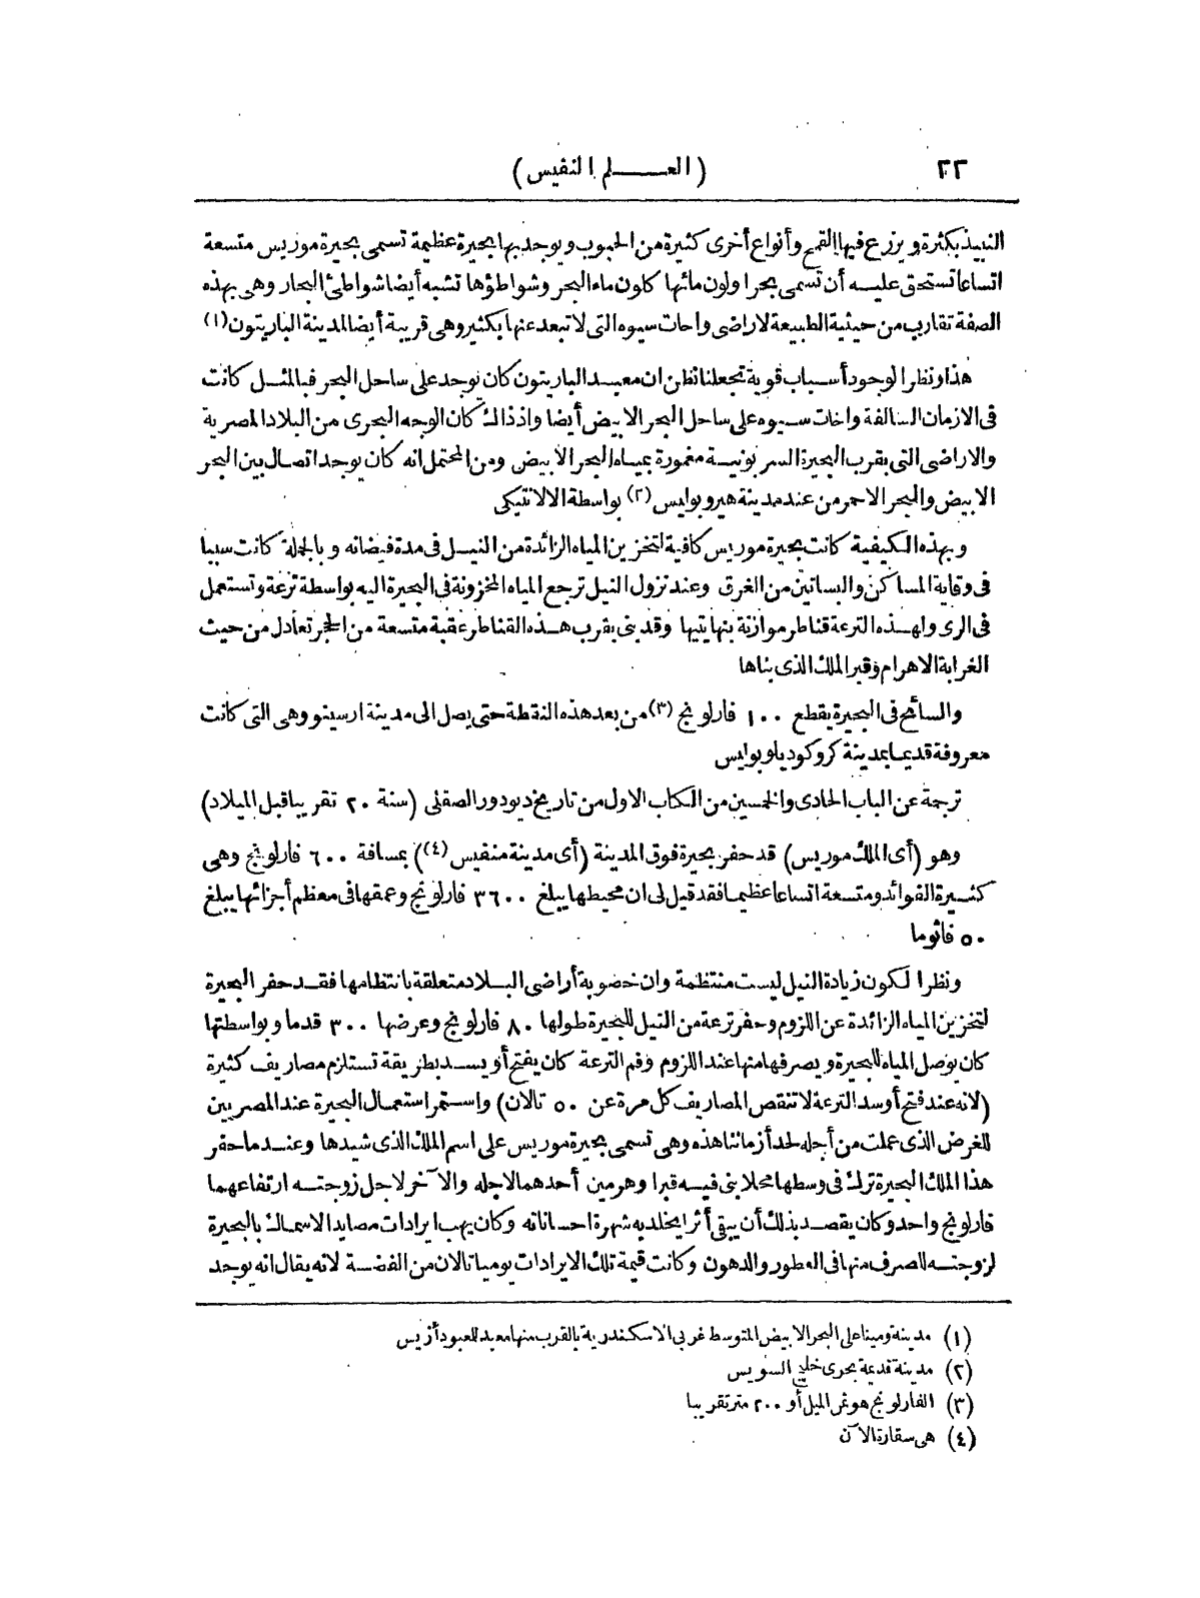 ٢٢
(العـــــلم النفيس)
النبيذ بكثرة ويزرع فيها القمح وأنواع أخرى كثيرة من الحبوب ويوجد بها بحيرة عظيمة تسمى بحيرة موريس متسعة
اتساعا تستحق عليه أن تسمى بحرا ولون مائها كلون ماء البحر وشواطؤها تشبه أيضا شواطئ البحار وهى بهذه
الصفة تقارب من حيثية الطبيعة لاراضى واحات سيوه التى لا تبعد عنها بكثير وهى قريبة أيضا لمدينة الباريتون (١)
هذا ونظرا لوجود أسباب قوية تجعلنا نظن ان معبد الباريتون كان يوجد على ساحل البحر فبالمثل كانت
فى الازمان السالفة واحات سيوه على ساحل البحر الابيض أيضا واذ ذاك كان الوجه البحرى من البلاد المصرية
والاراضى التى بقرب البحيرة السربونيسة مغمورة بمياه البحر الابيض ومن المحتمل انه كان يوجد اتصال بين البحر
الابيض والبحر الاحمر من عند مدينة هيروبوايس (٢) بواسطة الالانتيكى
وبهذه الكيفية كانت بحيرة موريس كافية لتخزين المياه الزائدة من النيل فى مدة فيضانه وبالجملة كانت سببا
فى وقاية المساكن والبساتين من الغرق وعند نزول النيل ترجع المياه المخزونة فى البحيرة اليه بواسطة ترعة وتستعمل
فى الرى ولهذه الترعة قناطر موازنة بنهايتيها وقد بنى بقرب هذه القناطر عقبة متسعة من الحجر تعادل من حيث
الغرابة الاهرام وقبر الملك الذى بناها
والسائح فى البحيرة يقطع ١٠٠ فارلونج (٣) من بعد هذه النقطة حتى يصل الى مدينة ارسينو وهى التى كانت
معروفة قديما بمدينة كروكوديلوبوايس
ترجمة عن الباب الحادى والخمسين من الكتاب الاول من تاريخ ديودور الصقلى (سنة ٢٠ تقريبا قبل الميلاد)
وهو (أى الملك موريس) قد حفر بحيرة فوق المدينة (أى مدينة منفيس (٤)) بمسافة ٦٠٠ فارلونج وهى
كثيرة الفوائد ومتسعة اتساعا عظيما فقد قيل لى ان محيطها يبلغ ٣٦٠٠ فارلونج وعمقها فى معظم أجزائها يبلغ
٥٠ فاثوما
ونظرا لكون زيادة النيل ليست منتظمة وان خصوبة أراضى البلاد متعلقة بانتظامها فقد حفر البحيرة
لتخزين المياه الزائدة عن اللزوم وحفر ترعة من النيل للبحيرة طولها ٨٠ فارلونج وعرضها ٣٠٠ قدما وبواسطتها
كان يوصل المياه للبحيرة ويصرفها منها عند اللزوم وفم الترعة كان يفتح أو يسد بطريقة تستلزم مصاريف كثيرة
(لانه عند فتح أو سد الترعة لا تنقص المصاريف كل مرة عن ٥٠ تالان) واستمر استعمال البحيرة عند المصريين
للغرض الذى عملت من أجله لحد أزماننا هذه وهى تسمى بحيرة موريس على اسم الملك الذى شيدها وعندما حفر
هذا الملك البحيرة ترك فى وسطها محلا بنى فيه قبرا وهرمين أحدهما لاجله والآخر لاجل زوجته ارتفاعهما
فارلونج واحد وكان يقصد بذلك أن يبقى أثر يخلد به شهرة احساناته وكان يهب ايرادات مصايد الاسماك بالبحيرة
لزوجته للصرف منها فى العطور والدهون وكانت قيمة تلك الايرادات يوميا تالان من الفضة لانه يقال انه يوجد
(١) مدينة ومينا على البحر الابيض المتوسط غربى الاسكندرية بالقرب منها معبد للعبود أزيس
(٢) مدينة قديمة بحرى خليج السويس
(٣) الفارلونج هو ثمن الميل أو ٢٠٠ متر تقريبا
(٤) هى سقارة الآن